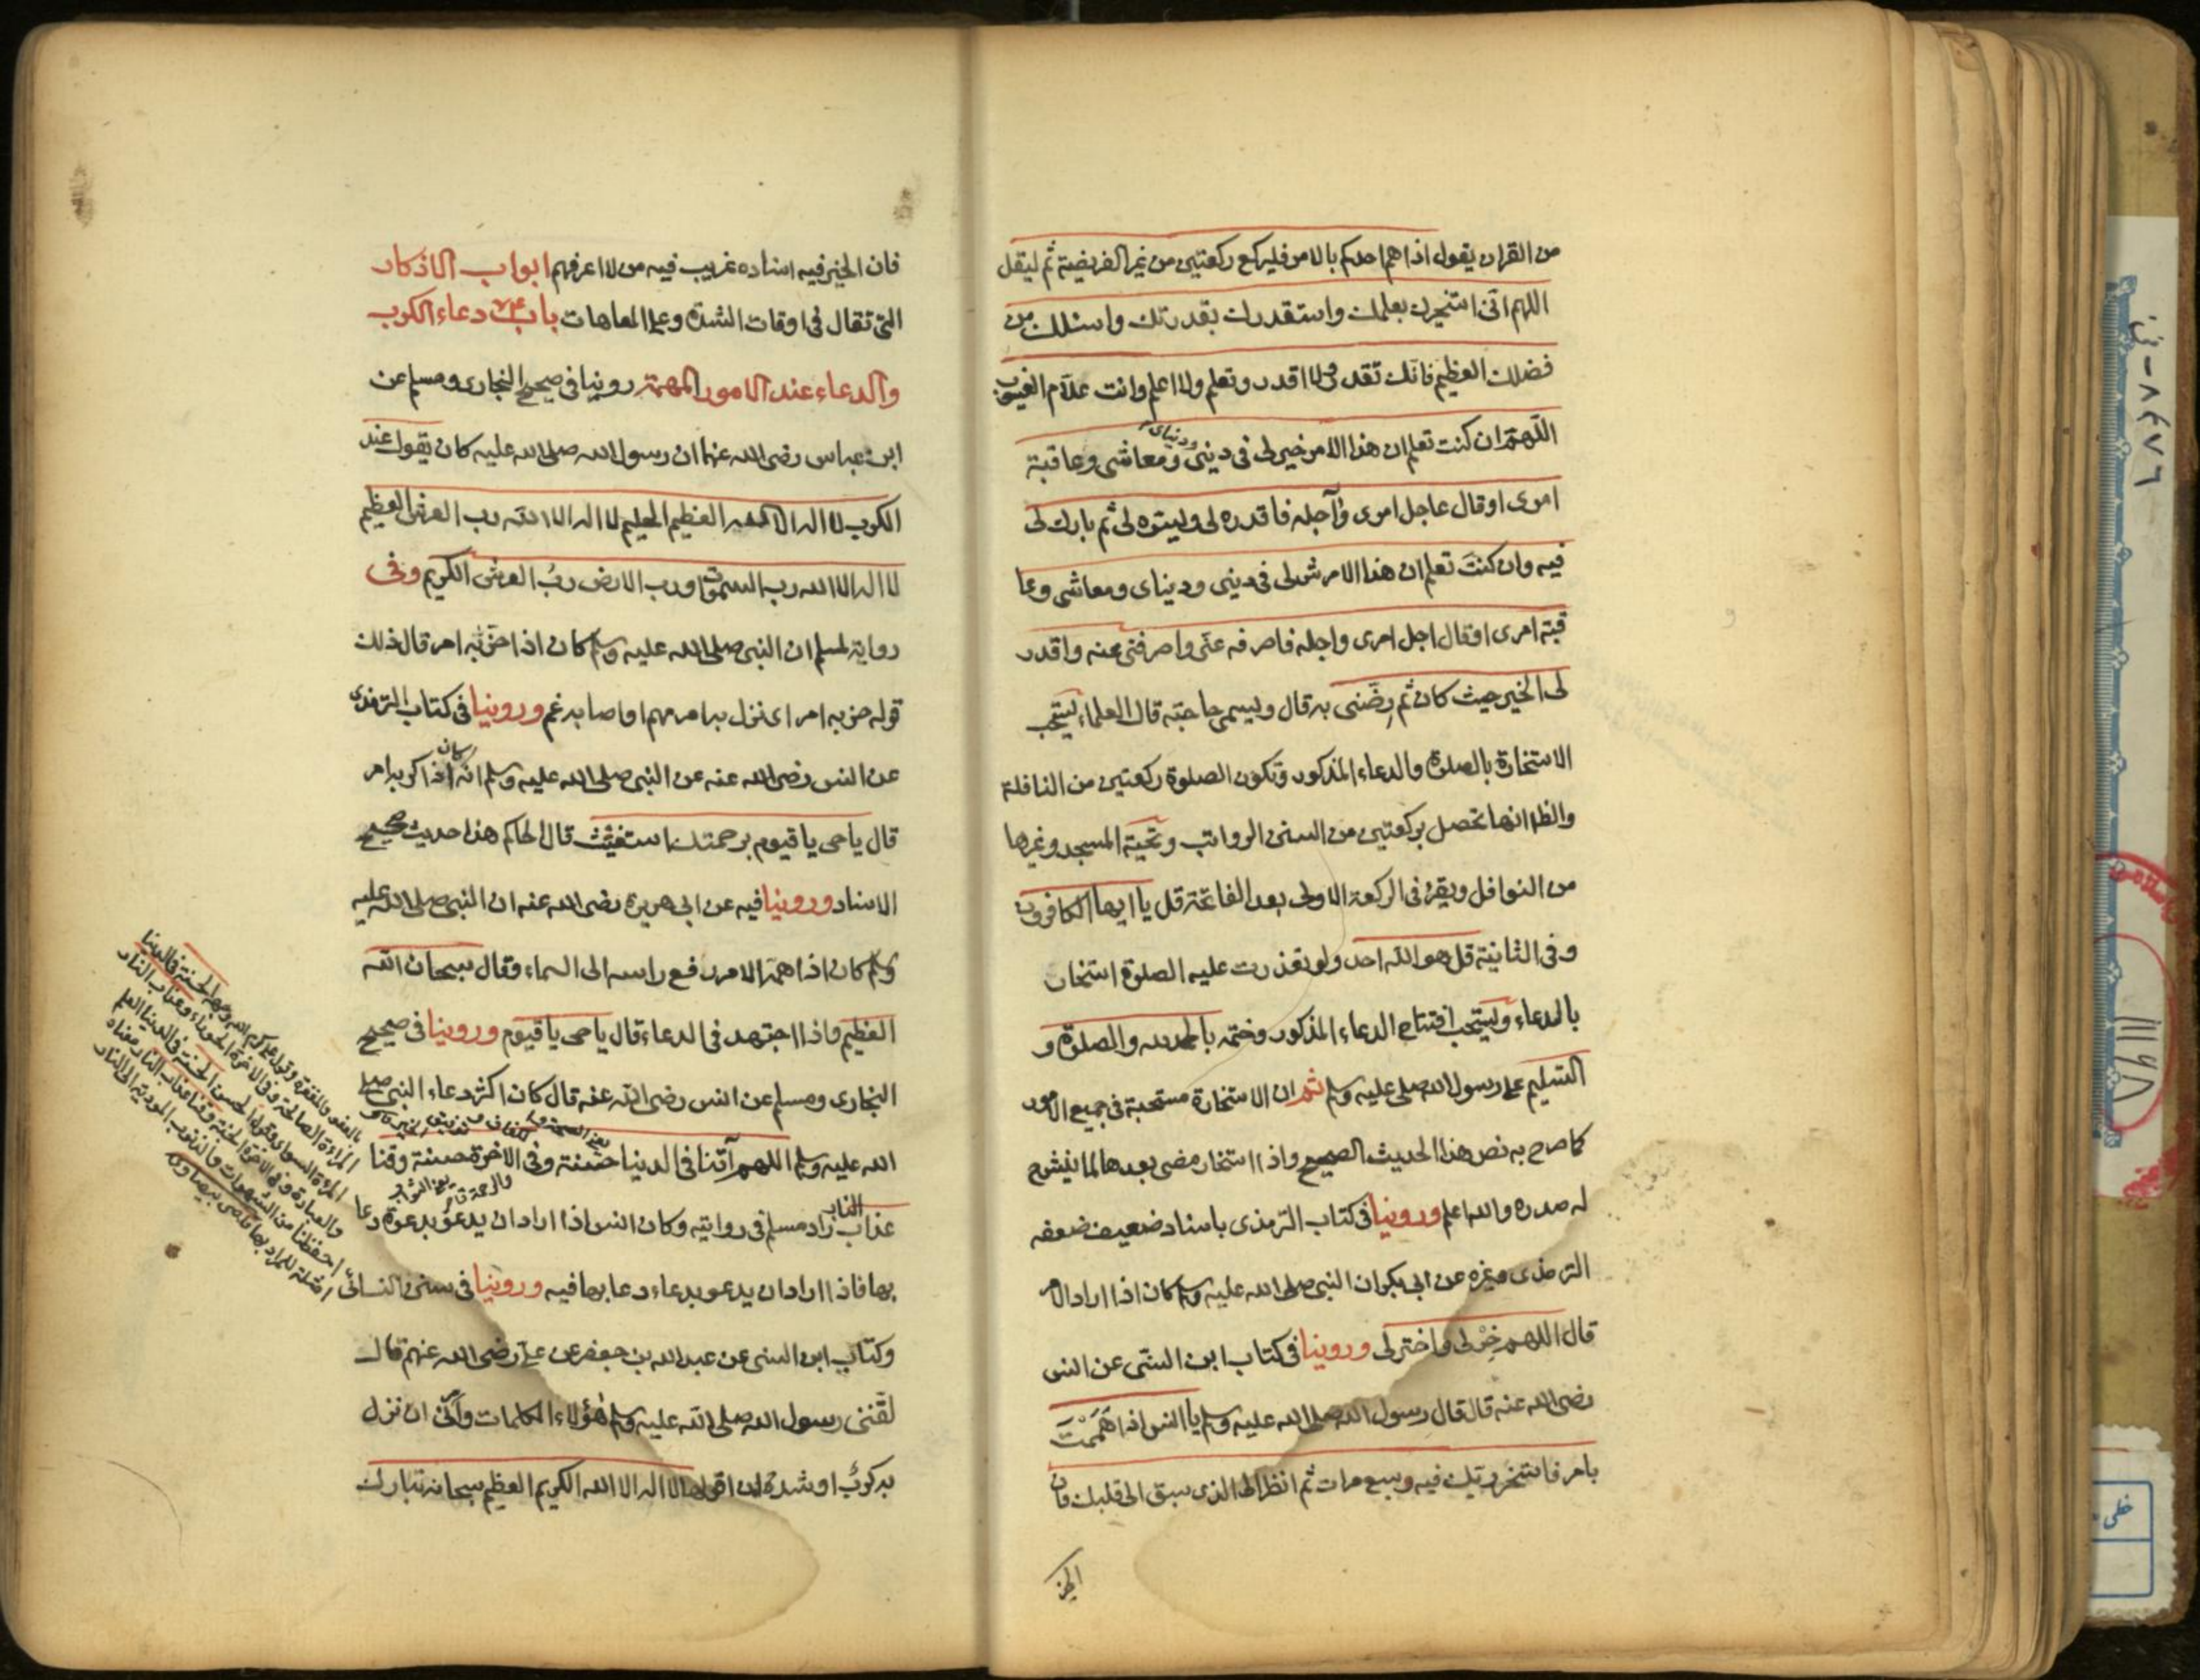 من القران يقول اذا هم احدكم بالامر فليركع ركعتين من غير الفريضة ثم ليقل
اللهم انى استخيرك بعلمك واستقدرك بقدرتك واسئلك من
فضلك العظيم فانك تقدر ولا اقدر وتعلم ولا اعلم وانت علام الغيوب
اللهم ان كنت تعلم ان هذا الامر خير لى فى دينى ودنياى ومعاشى وعاقبة
امرى او قال عاجل امرى وآجله فاقدره لى ويسره لى ثم بارك لى
فيه وان كنت تعلم ان هذا الامر شر لى فى دينى ودنياى ومعاشى وعا
قبة امرى او قال اجل امرى واجله فاصرفه عنى واصرفنى عنه واقدر
لى الخير حيث كان ثم رضنى به قال ويسمى حاجته قال العلماء يستحب
الاستخارة بالصلوة والدعاء المذكور وتكون الصلوة ركعتين من النافلة
والظ انها تحصل بركعتين من السنن الرواتب وتحية المسجد وغيرها
من النوافل ويقرء فى الركعة الاولى بعد الفاتحة قل يا ايها الكافرون
وفى الثانية قل هو الله احد ولو تعذرت عليه الصلوة استخار
بالدعاء ويستحب افتتاح الدعاء المذكور وختمه بالحمد لله والصلوة و
التسليم على رسول الله صلى عليه وسلم ثم ان الاستخارة مستحبة فى جميع الامور
كما صرح به نص هذا الحديث الصحيح واذا استخار مضى بعدها لما ينشرح
له صدره والله اعلم وروينا فى كتاب الترمذى باسناد ضعيف ضعفه
الترمذى وغيره عن ابى بكر ان النبى صلى الله عليه وسلم كان اذا اراد الامر
قال اللهم خر لى واختر لى وروينا فى كتاب ابن السنى عن انس
رضى الله عنه قال قال رسول الله صلى الله عليه وسلم يا انس اذا هممت
بامر فاستخر ربك فيه سبع مرات ثم انظر الى الذى سبق الى قلبك فان
الخير
فان الخير فيه اسناده غريب فيه من لا اعرفهم ابواب الاذكار
التى تقال فى اوقات الشدة وعلى العاهات باب دعاء الكرب
والدعاء عند الامور المهمة روينا فى صحيح البخارى ومسلم عن
ابن عباس رضى الله عنهما ان رسول الله صلى الله عليه كان يقول عند
الكرب لا اله الا الله العظيم الحليم لا اله الا الله رب العرش العظيم
لا اله الا الله رب السموات ورب الارض رب العرش الكريم وفى
رواية لمسلم ان النبى صلى الله عليه وسلم كان اذا حزبه امر قال ذلك
قوله حزبه امر اى نزل به امر مهم او اصابه غم وروينا فى كتاب الترمذى
عن انس رضى الله عنه عن النبى صلى الله عليه وسلم انه كان اذا اكربه امر
قال يا حى يا قيوم برحمتك استغيث قال الحاكم هذا حديث صحيح
الاسناد وروينا فيه عن ابى هريرة رضى الله عنه ان النبى صلى الله عليه
وسلم كان اذا اهمه الامر رفع راسه الى السماء وقال سبحان الله
العظيم واذا اجتهد فى الدعاء قال يا حى يا قيوم وروينا فى صحيح
البخارى ومسلم عن انس رضى الله عنه قال كان اكثر دعاء النبى صلى
الله عليه وسلم اللهم آتنا فى الدنيا حسنة وفى الاخرة حسنة وقنا
عذاب النار زاد مسلم فى روايته وكان انس اذا اراد ان يدعو بدعوة دعا
بها فاذا اراد ان يدعو بدعاء دعا بها فيه وروينا فى سنن النسائى
وكتاب ابن السنى عن عبد الله بن جعفر عن على رضى الله عنهم قال
لقننى رسول الله صلى الله عليه وسلم هؤلاء الكلمات وامرنى ان نزل
بى كرب او شدة ان اقولها لا اله الا الله الكريم العظيم سبحانه تبارك
يعنى الصحة و الكفاف و توفيق الخير
يعنى الثواب والرحمة
بالعفو والمغفرة وقول على كرم الله وجهه الحسنة فى الدنيا
المرءة الصالحة وفى الاخرة الحوراء وعذاب النار
المرءة السوء وقول الحسن الحسنة فى الدنيا العلم
والعبادة وفى الاخرة الجنة وقنا عذاب النار معناه
احفظنا من الشهوات والذنوب المودية الى النار
امثلة للمراد بها قاضى بيضاوى
٨٤٧٦ - ف
١١١٤٨
خطى